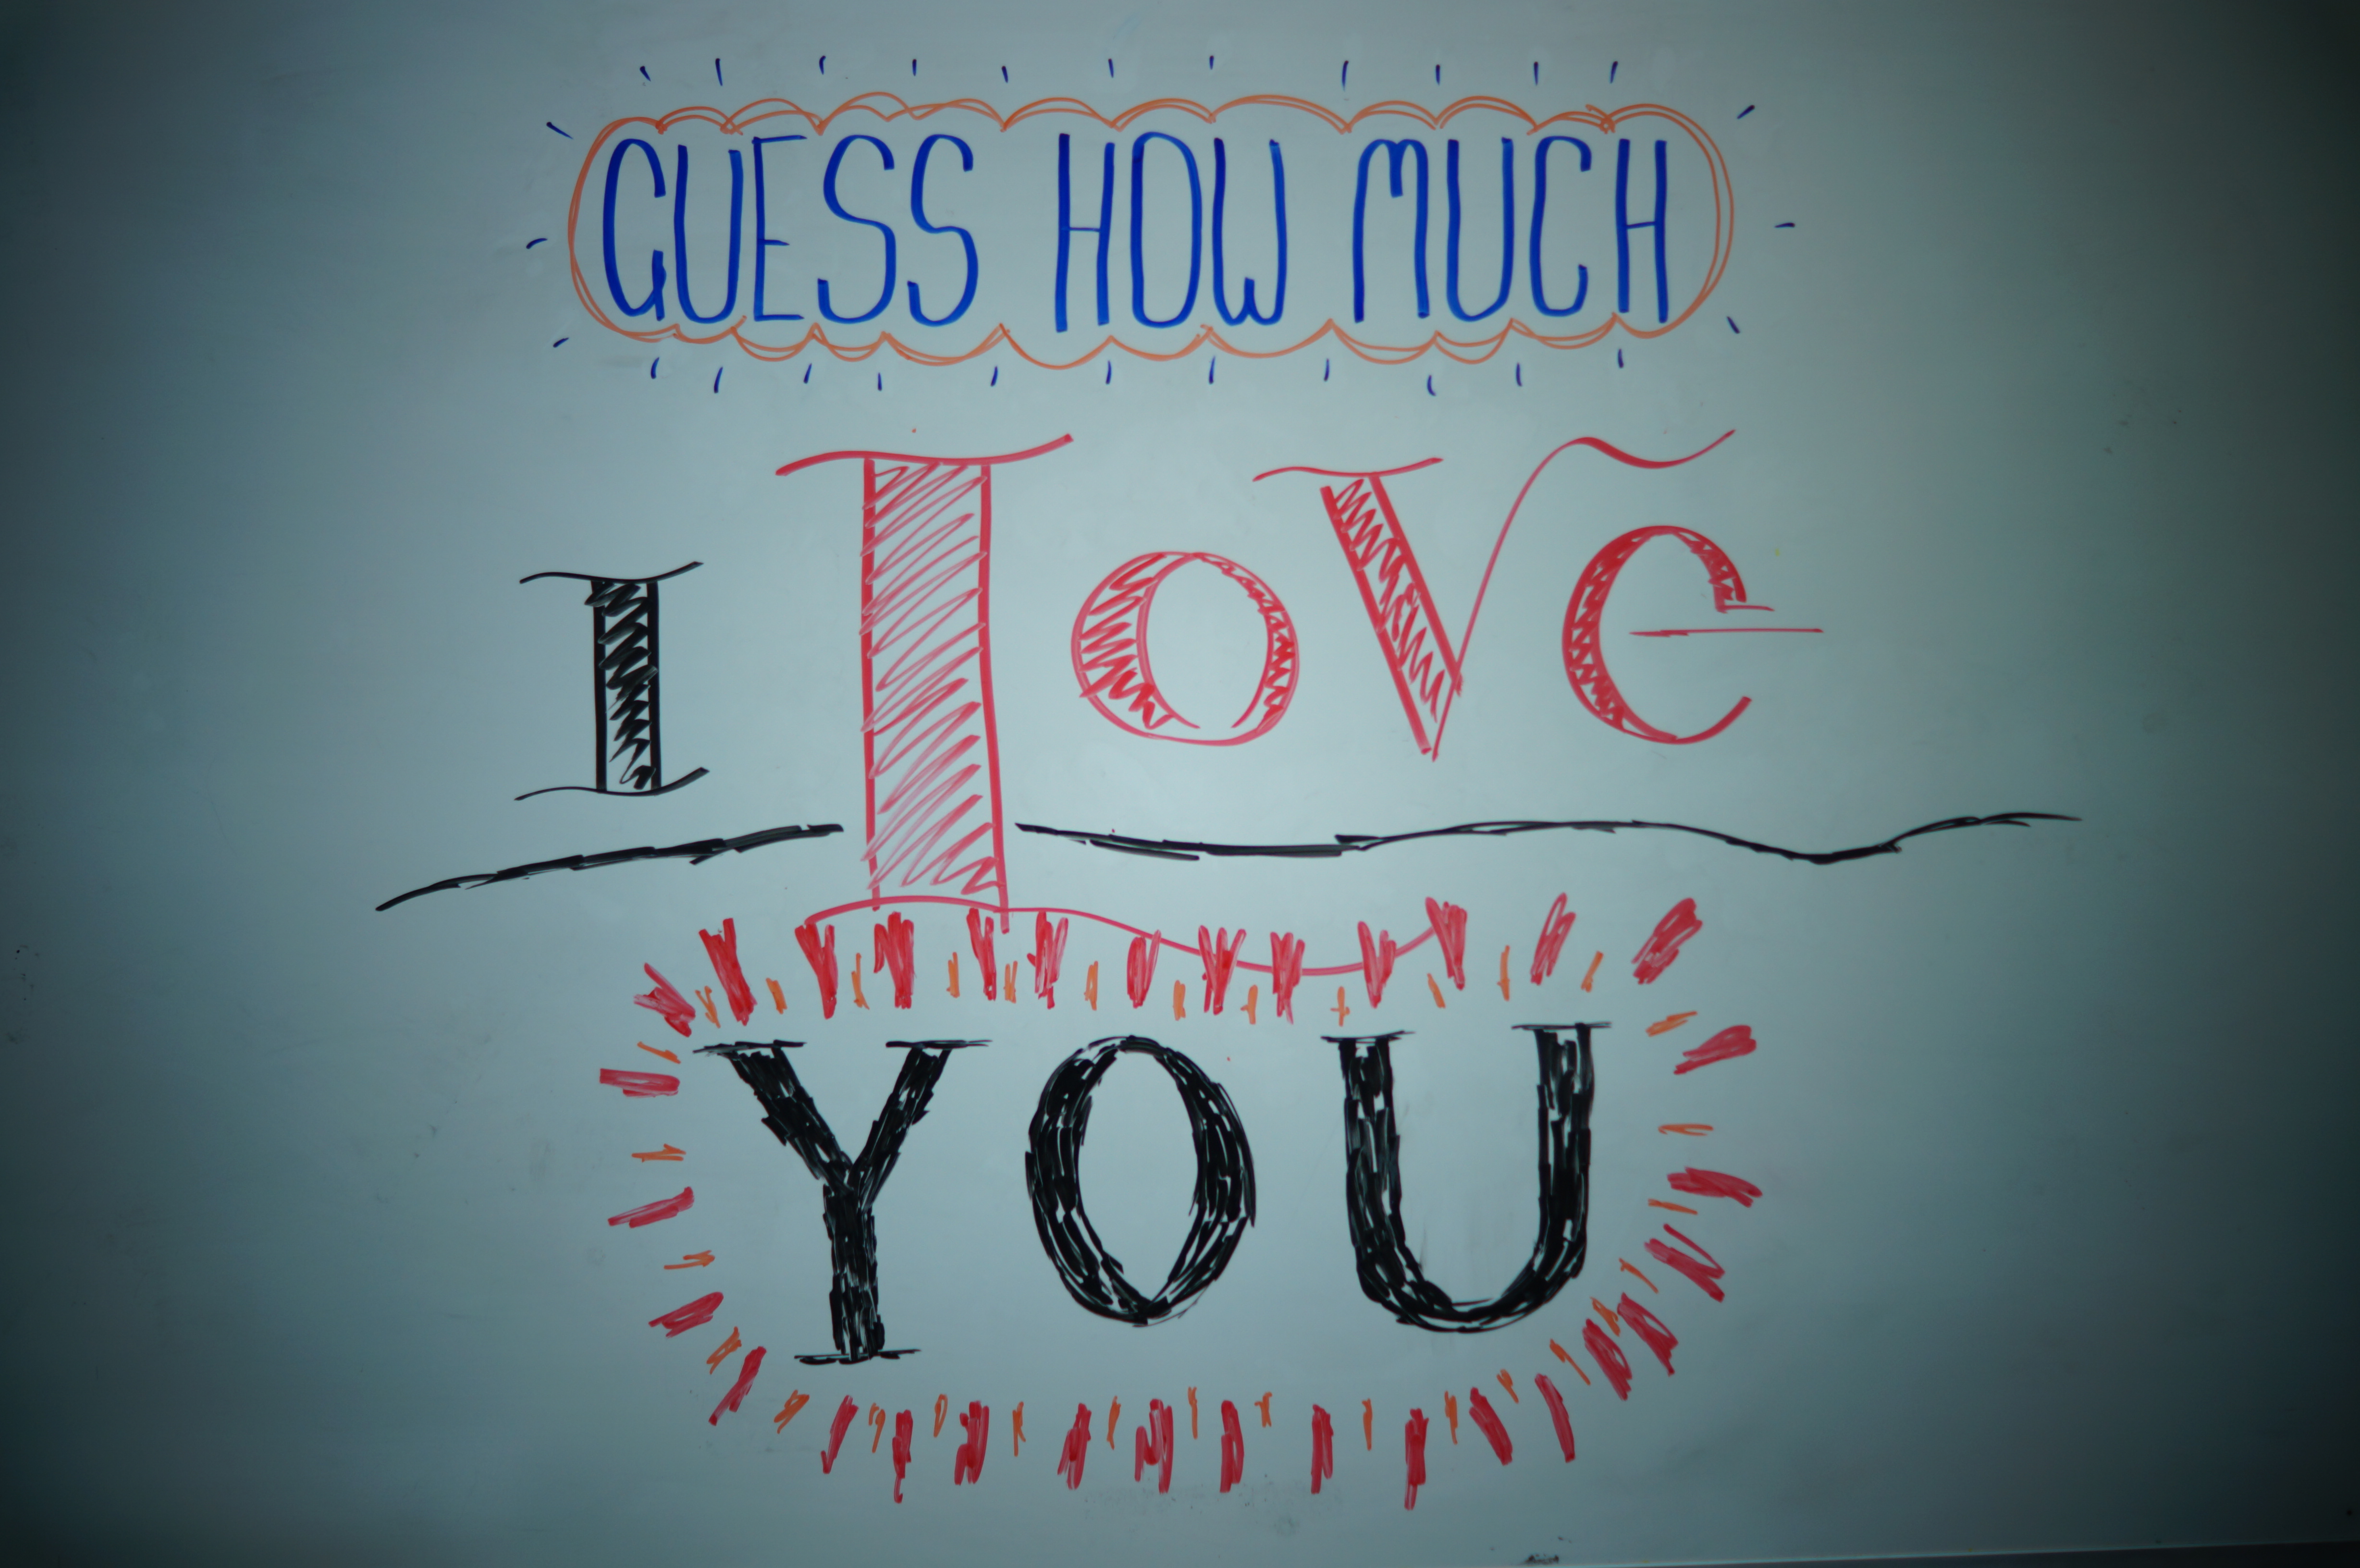 GUESS HOW MUCH
I LOVE
YOU